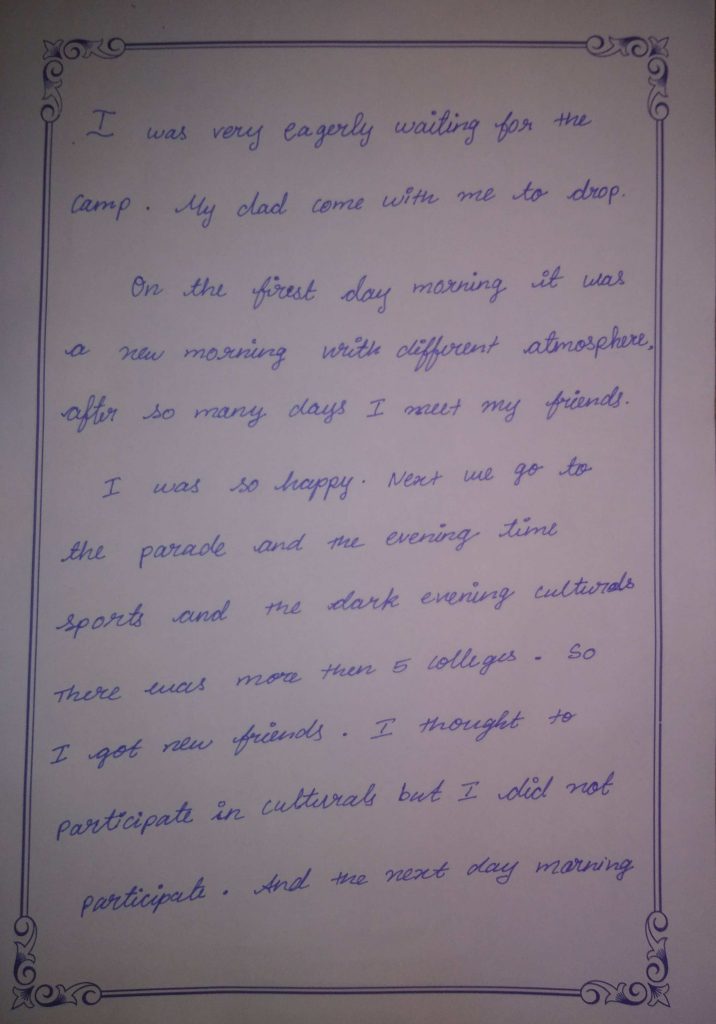 I was very eagerly waiting for the
camp. My dad come with me to drop.
On the first day morning it was
a new morning with different atmosphere,
after so many days I meet my friends.
I was so happy. Next we go to
the parade and the evening time
sports and the dark evening culturals
There was more then 5 colleges. So
I got new friends. I thought to
participate in culturals but I did not
participate. And the next day morning